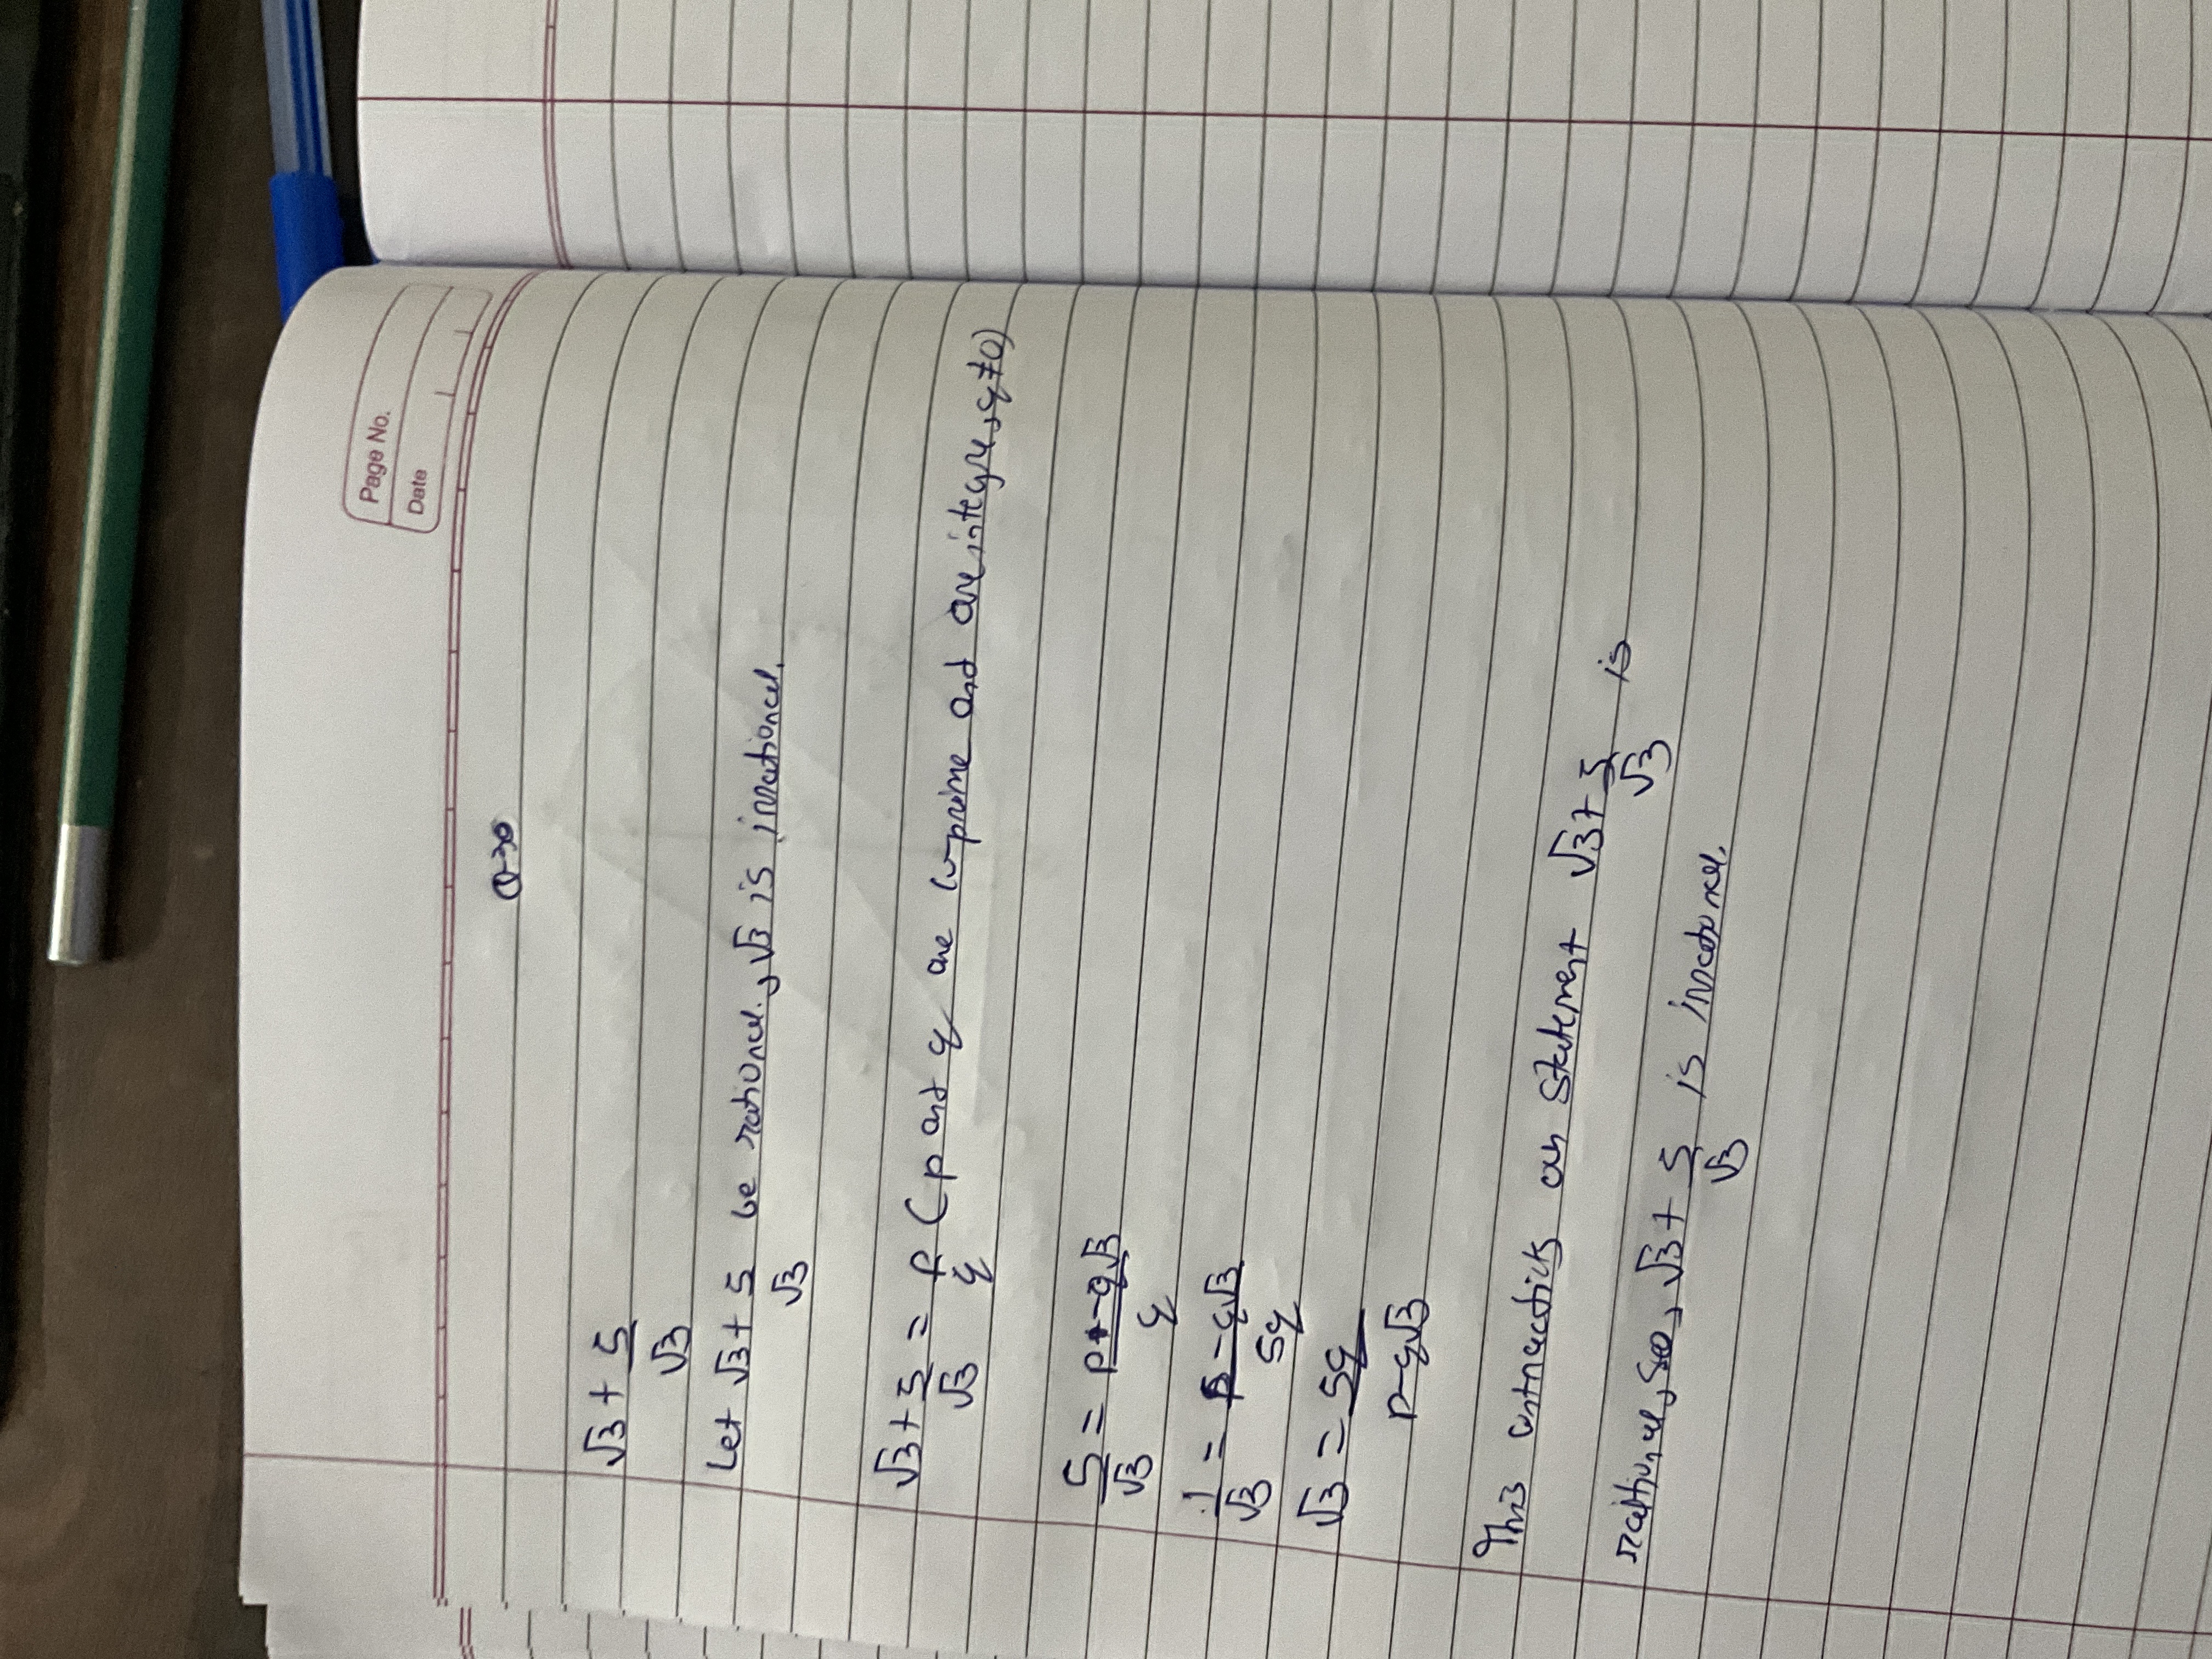 Page No.
Date
Q-30
√3 + 5/√3
Let √3 + 5/√3 be rational, √3 is irrational.
√3 + 5/√3 = p/q (p and q are co-prime and are integers, q≠0)
5/√3 = p-q√3/q
1/√3 = p-q√3/5q
√3 = 5q/p-q√3
This contradicts our statement √3+5/√3 is
rational, so, √3+5/√3 is irrational.